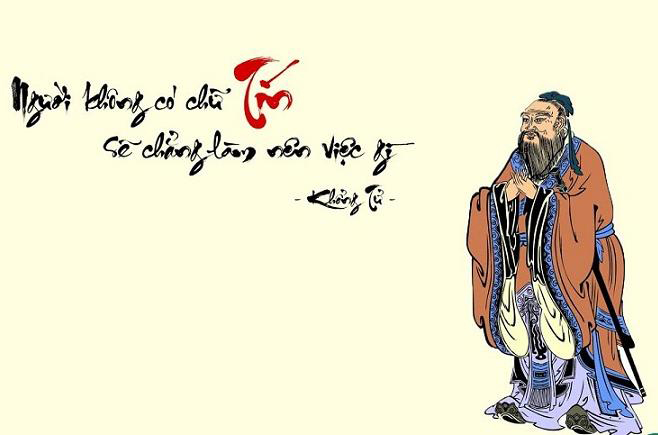 Người không có chữ Tín
Sẽ chẳng làm nên việc gì
- Khổng Tử -